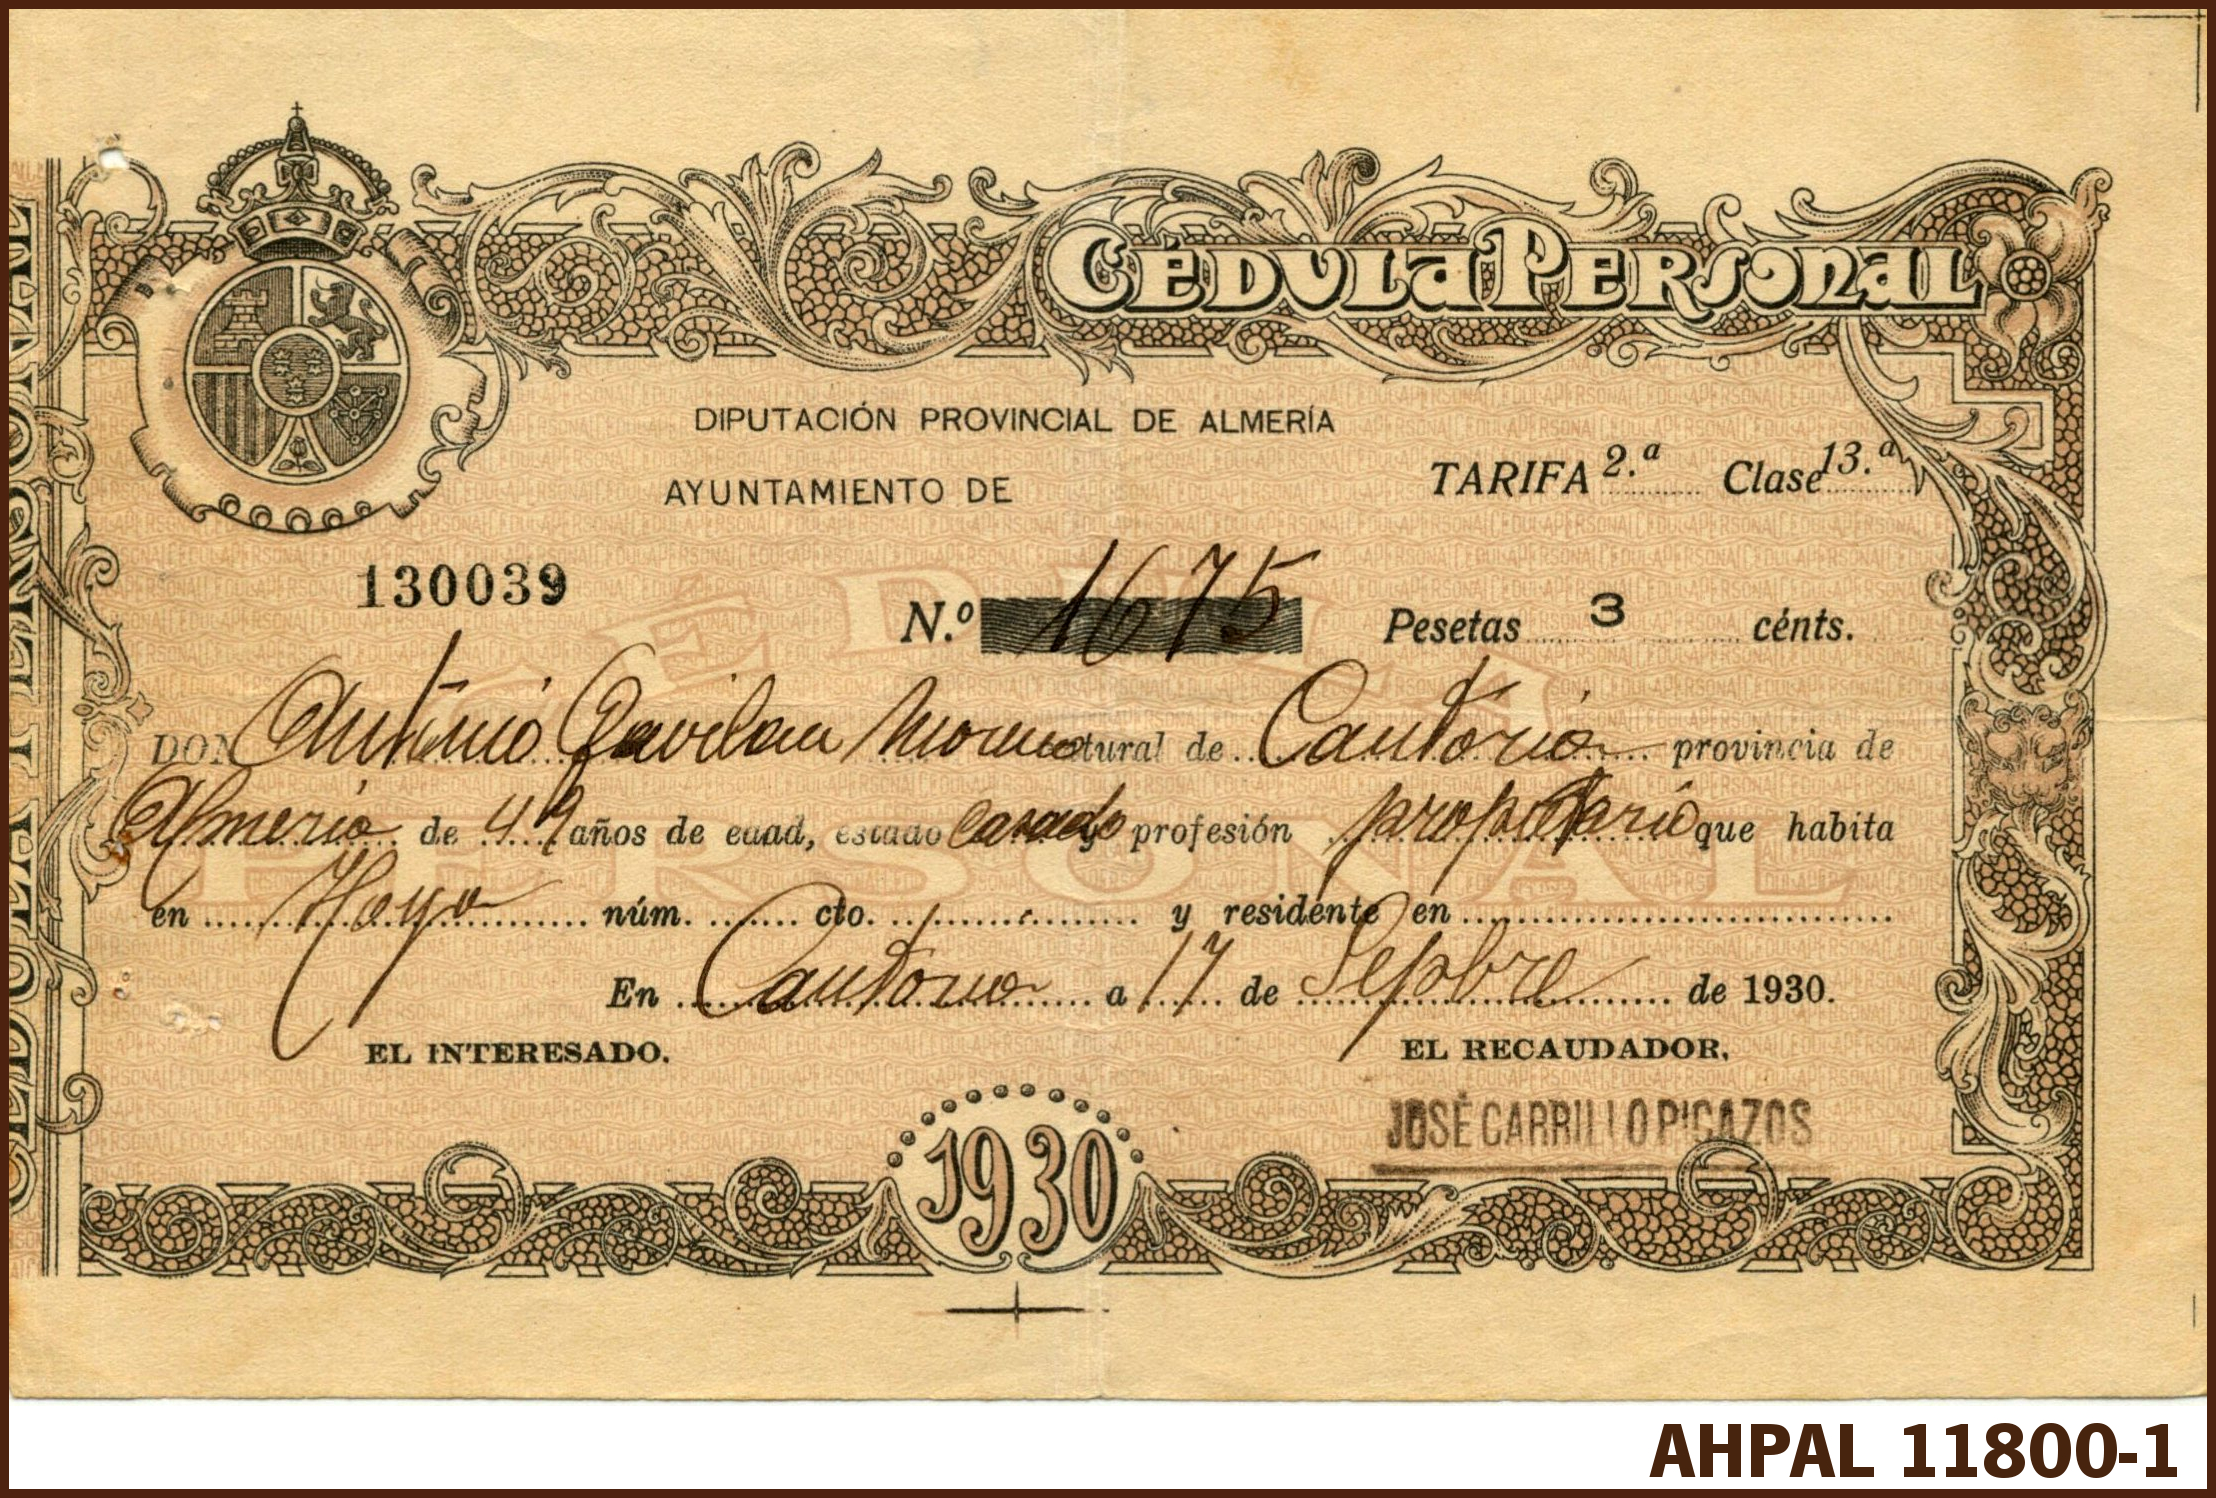 CÉDULA PERSONAL
DIPUTACIÓN PROVINCIAL DE ALMERÍA
TARIFA 2.ª Clase 13.ª
AYUNTAMIENTO DE
130039
N.º 1675 Pesetas 3 cénts.
DON Antonio Gavilan Moreno natural de Cantoria provincia de
Almeria de 49 años de edad, estado casado profesión propietario que habita
en Hoyo núm. cto. y residente en
En Cantoria a 17 de Sepbre de 1930.
EL INTERESADO. EL RECAUDADOR,
JOSÉ CARRILLO PICAZOS
1930
CÉDULA PERSONAL
AHPAL 11800-1